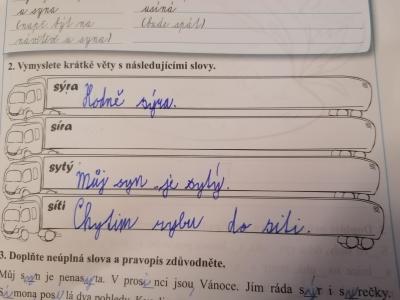 u syna usíná
(např. být na (bude spát)
návštěvě u syna)
2. Vymyslete krátké věty s následujícími slovy.
sýra
Hodně sýra.
síra
sytý
Můj syn je sytý.
síti
Chytim rybu do siti.
3. Doplňte neúplná slova a pravopis zdůvodněte.
Můj syn je nenasyta. V prosinci jsou Vánoce. Jím ráda sýr i syrečky.
Simona posílá dva pohledy